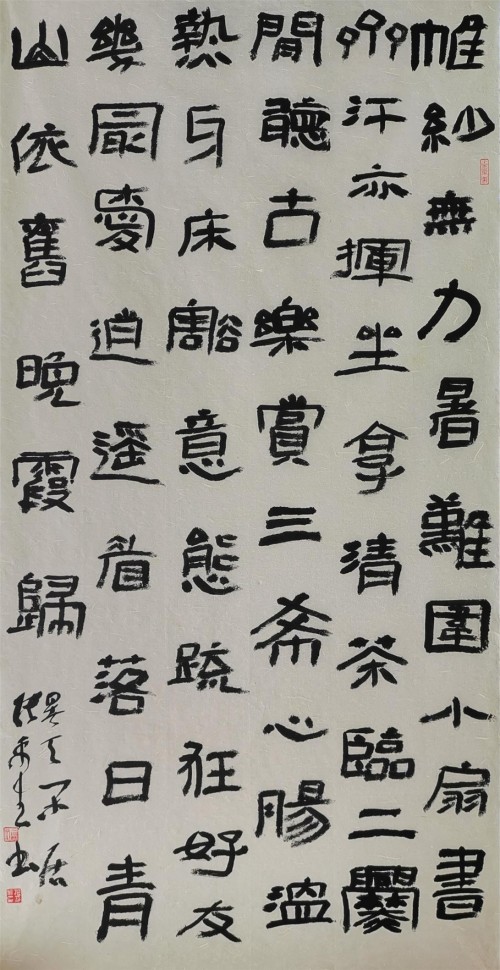 帷紗無力暑難圍小扇書
汗亦揮坐拿清茶臨二爨
閒聽古樂賞三希心腸溫
熱身床豁意態疏狂好友
幾最愛逍遙看落日青
山依舊晚霞歸